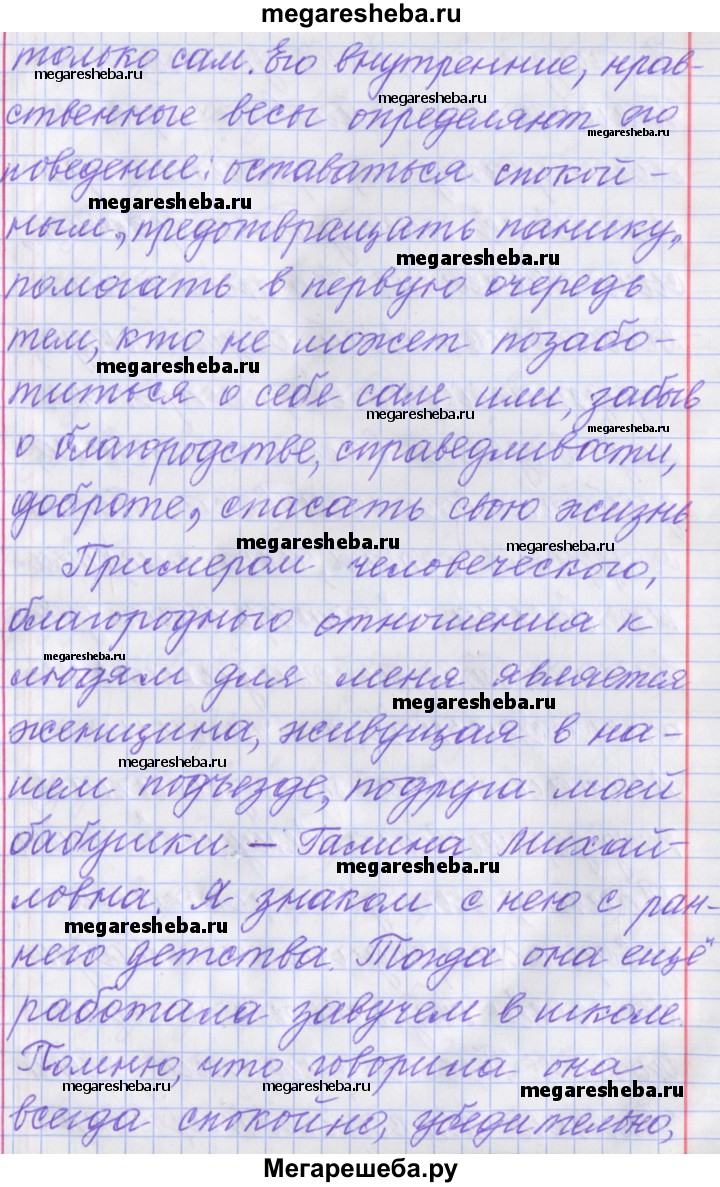 megaresheba.ru
только сам. Его внутренние, нрав-
megaresheba.ru
ственные весы определяют его
megaresheba.ru
megaresheba.ru
поведение: оставаться спокой-
megaresheba.ru
ным, предотвращать панику,
megaresheba.ru
помогать в первую очередь
тем, кто не может позабо-
megaresheba.ru
титься о себе сам или, забыв
megaresheba.ru
megaresheba.ru
о благородстве, справедливости,
доброте, спасать свою жизнь.
megaresheba.ru
megaresheba.ru
Примером человеческого,
благородного отношения к
megaresheba.ru
людям для меня является
megaresheba.ru
женщина, живущая в на-
megaresheba.ru
шем подъезде, подруга моей
бабушки – Галина Михай-
megaresheba.ru
ловна. Я знаком с нею с ран-
megaresheba.ru
него детства. Тогда она ещё
работала завучем в школе.
Помню, что говорила она
megaresheba.ru
megaresheba.ru
megaresheba.ru
всегда спокойно, убедительно,
Мегарешеба.ру